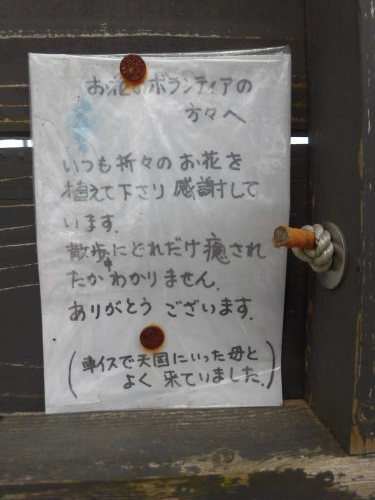 お花のボランティアの
方々へ
いつも折々のお花を
植えて下さり感謝して
います.
散歩中にどれだけ癒され
たかわかりません.
ありがとうございます.
(車イスで天国にいった母と
よく来ていました.)